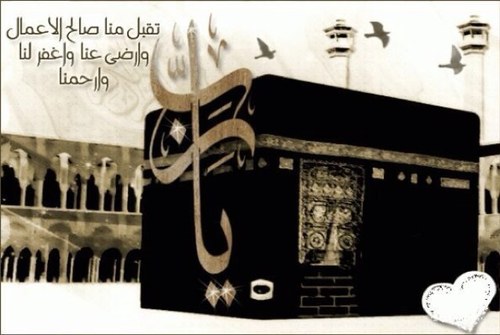 تقبل منا صالح الاعمال
وارضى عنا واغفر لنا
وارحمنا
يا رب